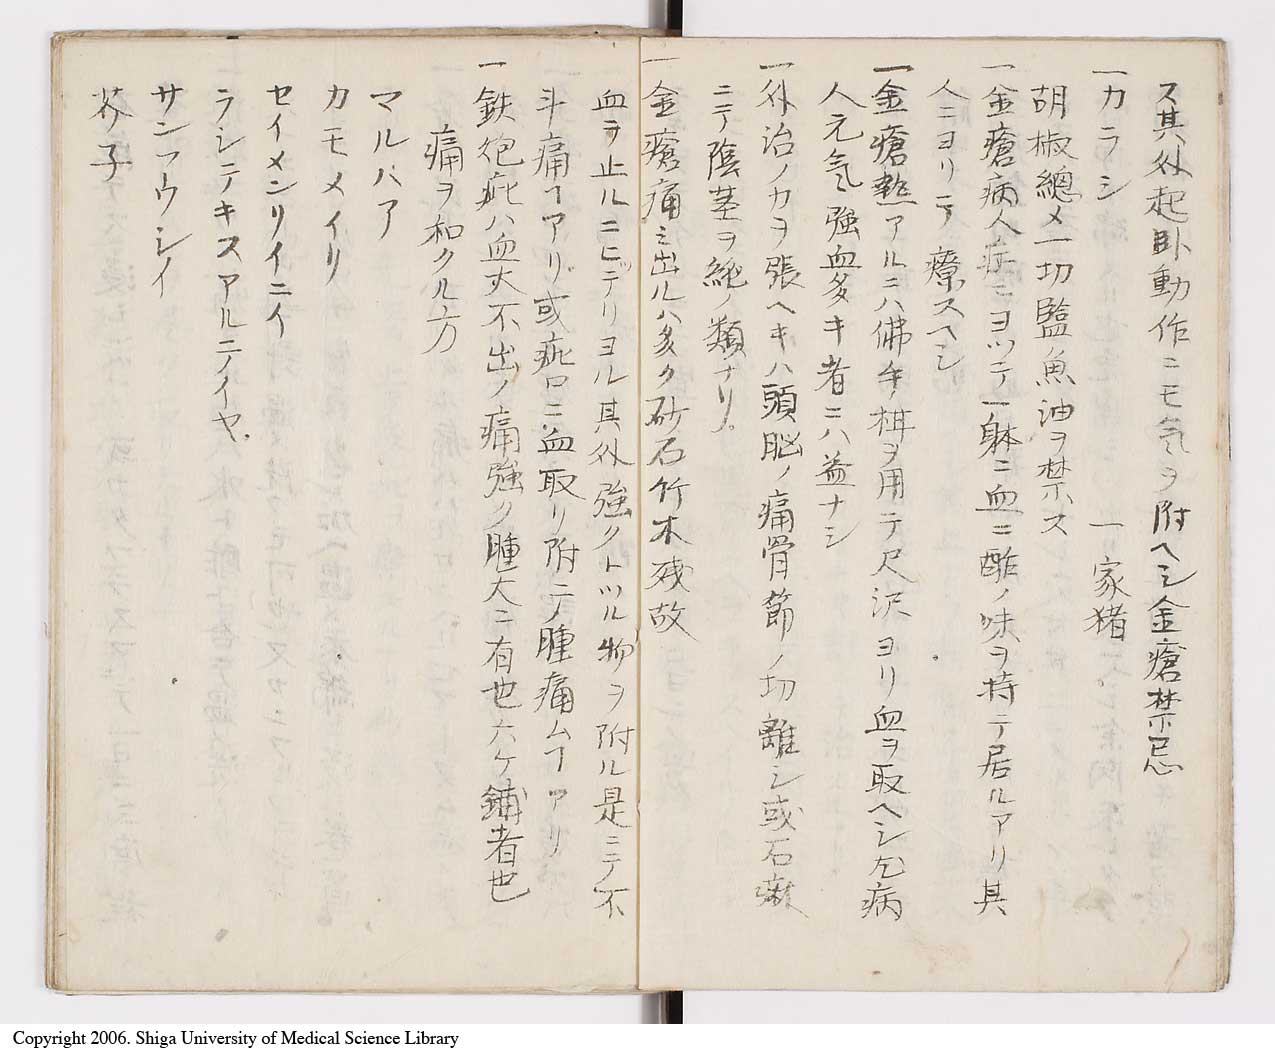 ス其外起臥動作ニモ気ヲ附ヘシ金瘡禁忌
一カラシ 一家猪
胡椒總メ一切監魚油ヲ禁ス
一金瘡病人症ニヨツテ一躰ニ血ニ酢ノ味ヲ持テ居ルアリ其
人ニヨリテ療スヘシ
一金瘡熱アルニハ佛手柑ヲ用テ尺沢ヨリ血ヲ取ヘシ尤病
人元気強血多キ者ニハ益ナシ
一外治ノカヲ張ヘキハ頭脳ノ痛骨節ノ切離シ或石癜
ニテ陰茎ヲ絶ノ類ナリ
一金瘡痛ミ出ルハ多ク砂石竹木残故
血ヲ止ルニヒデリヨル其外強クトツル物ヲ附ル是ニテ不
斗痛ヿアリ或疵口ニ血取リ附ニテ腫痛ムヿアリ
一鉄炮疵ハ血丈不出ノ痛強ク腫大ニ有也六ケ鋪者也
痛ヲ和クル方
マルバア
カモメイリ
セイメンリイニイ
ラシニテキスアルニイヤ
サンフウシイ
芥子
Copyright 2006. Shiga University of Medical Science Library